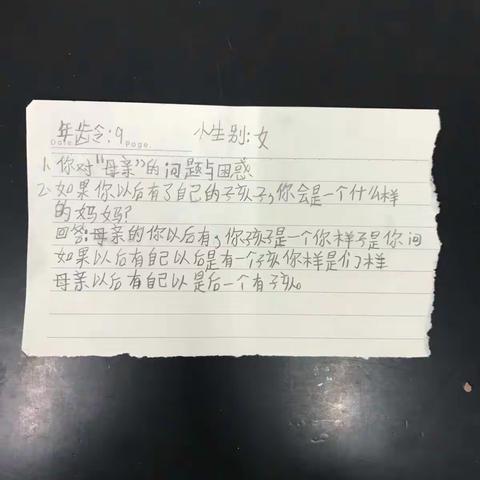 年龄:9 性别:女
Date. Page.
1. 你对"母亲"的问题与困惑
2. 如果你以后有了自己的孩子,你会是一个什么样
的妈妈?
回答:母亲的你以后有,你孩子是一个你样子是你问
如果以后有自己以后是有一个孩你样是们样
母亲以后有自己以是后一个有孩。